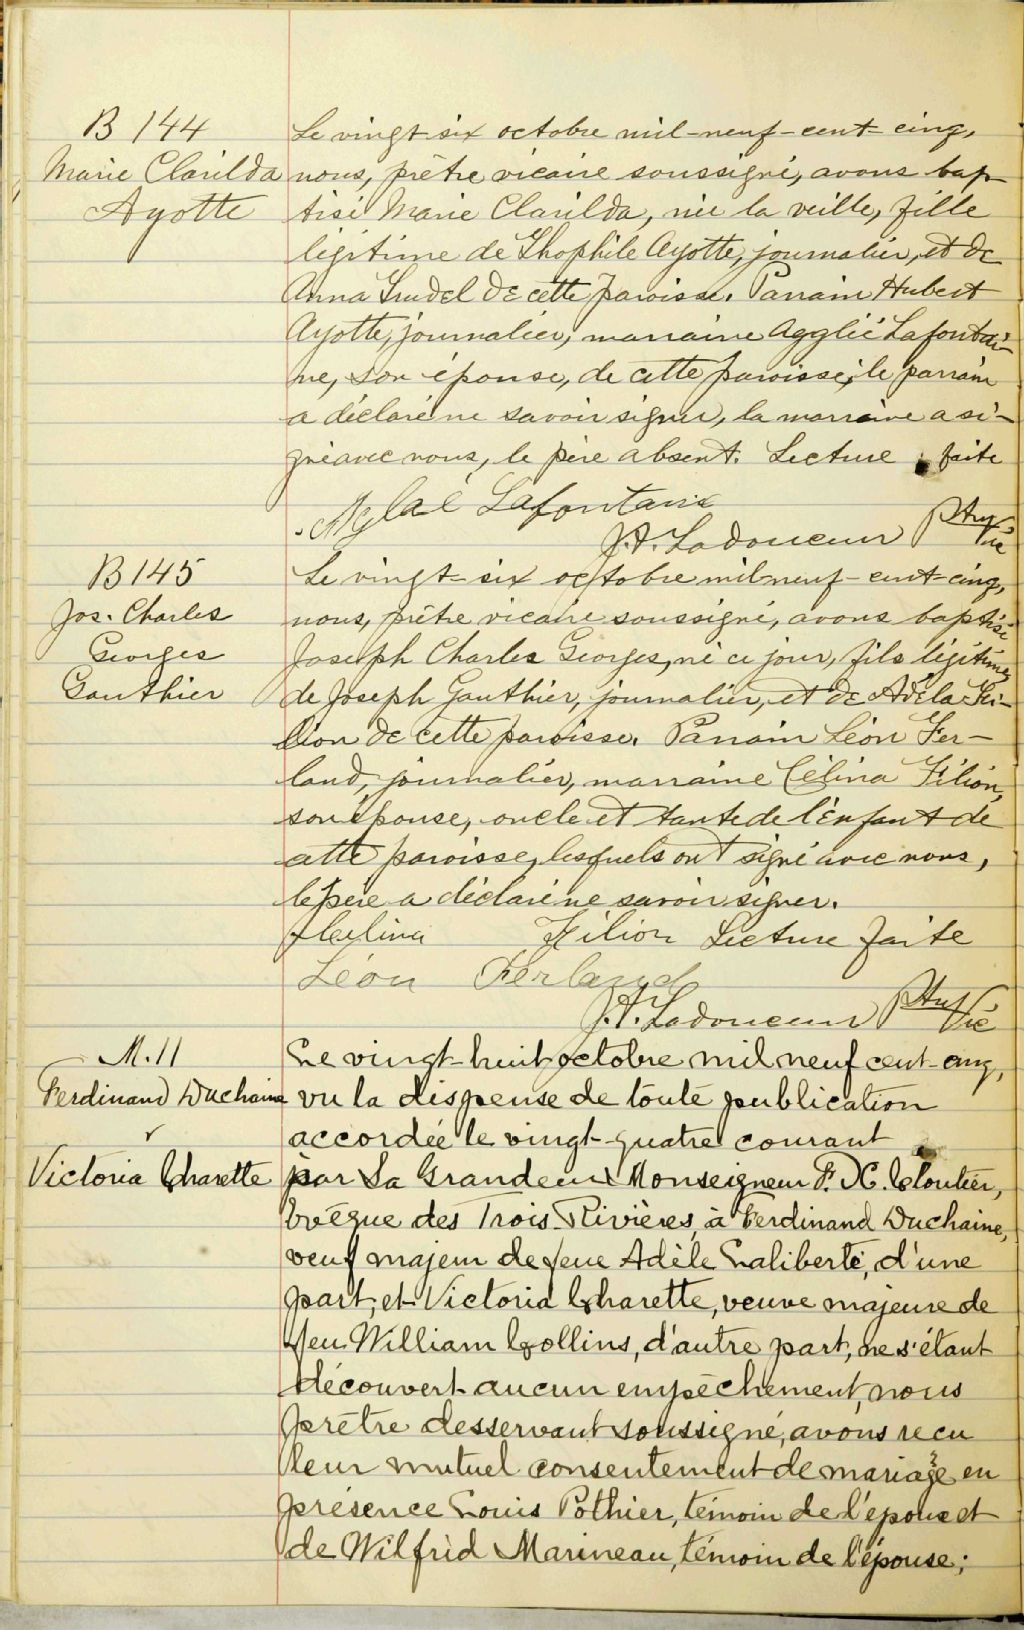 B 144
Marie Clarilda
Ayotte
Le vingt-six octobre mil-neuf-cent-cinq,
nous, prêtre vicaire soussigné, avons bap-
tisé Marie Clarilda, née la veille, fille
légitime de Théophile Ayotte, journalier, et de
Anna Trudel de cette paroisse. Parrain Hubert
Ayotte, journalier, marraine Agglié Lafontai-
ne, son épouse, de cette paroisse; le parrain
a déclaré ne savoir signer, la marraine a si-
gné avec nous, le père absent. Lecture faite
Aglaé Lafontaine
J.A. Ladouceur Ptre Vic
B 145
Jos. Charles
Georges
Gauthier
Le vingt-six octobre mil neuf-cent-cinq,
nous, prêtre vicaire soussigné, avons baptisé
Joseph Charles Georges, né ce jour, fils légitime
de Joseph Gauthier, journalier, et de Adèla Fi-
lion de cette paroisse. Parrain Léon Fer-
land, journalier, marraine Célina Filion,
son épouse, oncle et tante de l'Enfant de
cette paroisse, lesquels ont signé avec nous,
le père a déclaré ne savoir signer.
Célina Filion Lecture faite
Léon Ferland
J.A. Ladouceur Ptre Vic
M. 11
Ferdinand Duchaine
&
Victoria Charette
Le vingt-huit octobre mil neuf cent-cinq,
vu la dispense de toute publication
accordée le vingt-quatre courant
par Sa Grandeur Monseigneur F. X. Cloutier,
évêque des Trois-Rivières, à Ferdinand Duchaine,
veuf majeur de feue Adèle Laliberté, d'une
part, et Victoria Charette, veuve majeure de
feu William Collins, d'autre part, ne s'étant
découvert aucun empêchement, nous
prêtre desservant soussigné, avons recu
leur mutuel consentement de mariage en
présence Louis Pothier, témoin de l'époux et
de Wilfrid Marineau, témoin de l'épouse;